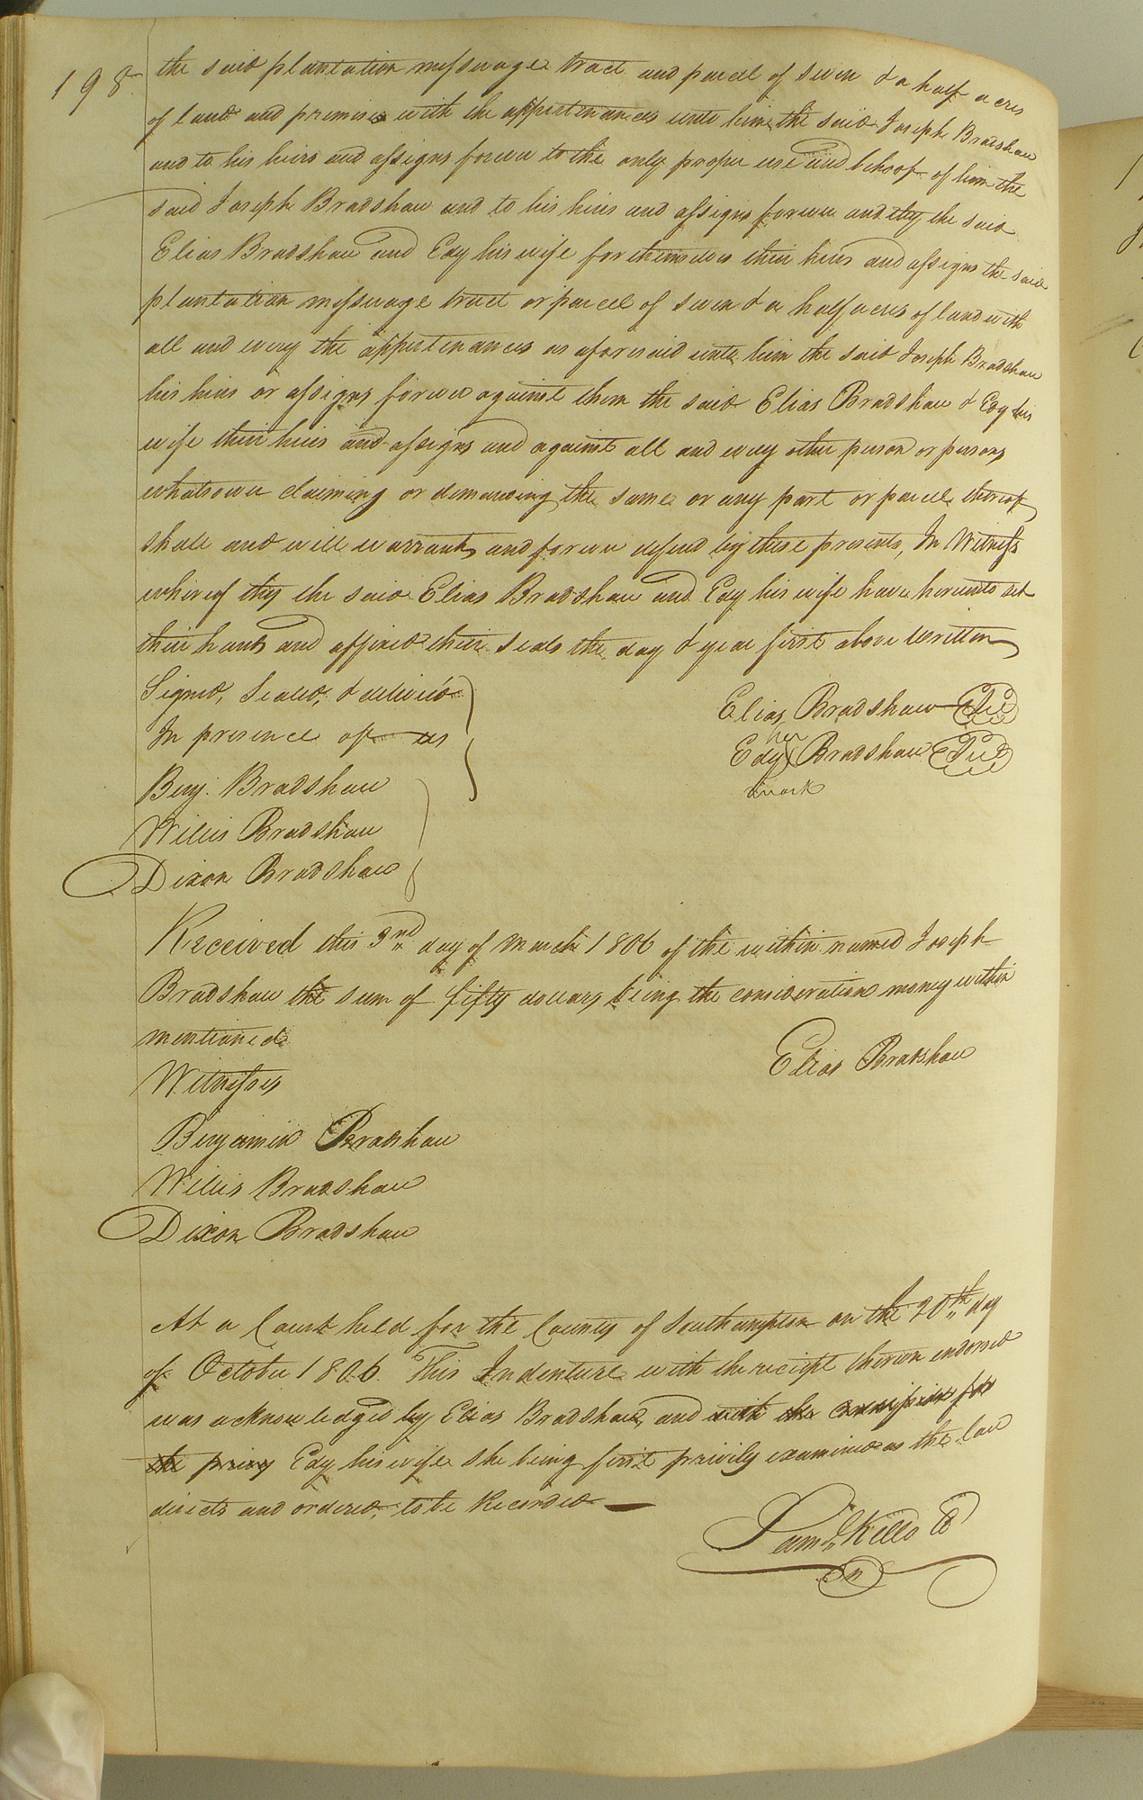 198
the said plantation messuage tract and parcel of seven & a half acres
of land and premises with the appurtenances unto him the said Joseph Bradshaw
and to his heirs and assigns forever to the only proper use and behoof of him the
said Joseph Bradshaw and to his heirs and assigns forever and they the said
Elias Bradshaw and Edy his wife for themselves their heirs and assigns the said
plantation messuage tract or parcel of seven & a half acres of land with
all and every the appurtenances as aforesaid unto him the said Joseph Bradshaw
his heirs or assigns forever against them the said Elias Bradshaw & Edy his
wife their heirs and assigns and against all and every other person or persons
whatsoever claiming or demanding the same or any part or parcel thereof
shall and will warrant and forever defend by these presents, In Witness
whereof they the said Elias Bradshaw and Edy his wife have hereunto set
their hands and affixed their seals the day & year first above written
Signed, Sealed, & deliver'd
In presence of us
Elias Bradshaw
her
Edy Bradshaw
mark
Benj. Bradshaw
Willis Bradshaw
Dixon Bradshaw
Received this 3rd day of March 1806 of the within named Joseph
Bradshaw the sum of fifty dollars, being the consideration money within
mentioned
Elias Bradshaw
Witnesses
Benjamin Bradshaw
Willis Bradshaw
Dixon Bradshaw
At a Court held for the County of Southampton on the 20th day
of October 1806. This Indenture with the receipt thereon endorsed
was acknowledged by Elias Bradshaw, and with the commission for
the privy Edy his wife she being first privily examined as the law
directs and ordered, to be Recorded
Saml. Kello